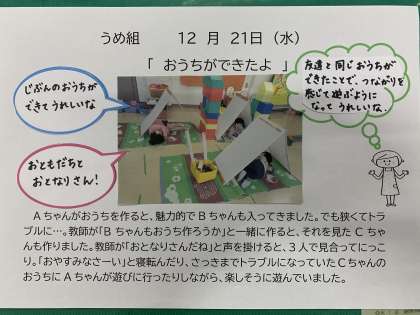 うめ組　　12 月 21日（水）
「 おうちができたよ 」
じぶんのおうちが
できてうれしいな
おともだちと
おとなりさん!
友達と同じおうちが
できたことで、つながりを
感じて遊ぶように
なって うれしいな。
Aちゃんがおうちを作ると、魅力的でBちゃんも入ってきました。でも狭くてトラ
ブルに…。教師が「Bちゃんもおうち作ろうか」と一緒に作ると、それを見たCちゃ
んも作りました。教師が「おとなりさんだね」と声を掛けると、3人で見合ってにっこ
り。「おやすみなさーい」と寝転んだり、さっきまでトラブルになっていたCちゃんの
おうちにAちゃんが遊びに行ったりしながら、楽しそうに遊んでいました。